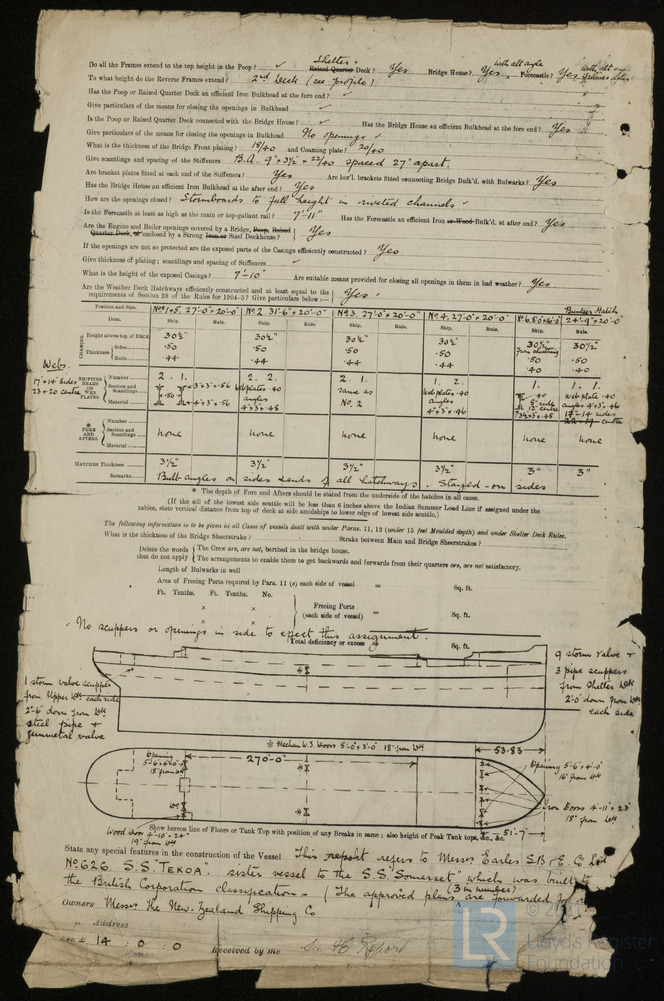 Do all the Frames extend to the top height in the Poop? ✓ Shelter Raised Quarter Deck? Yes Bridge House? Yes, with alt angle Forecastle? Yes with alt
To what height do the Reverse Frames extend? 2nd Deck (see profile)
Has the Poop or Raised Quarter Deck an efficient Iron Bulkhead at the fore end? ✓
Give particulars of the means for closing the openings in Bulkhead ✓
Is the Poop or Raised Quarter Deck connected with the Bridge House? ✓ Has the Bridge House an efficient Bulkhead at the fore end? Yes
Give particulars of the means for closing the openings in Bulkhead No openings ✓
What is the thickness of the Bridge Front plating? 18/40 and Coaming plate? 20/40
Give scantlings and spacing of the Stiffeners B.A. 9" × 3½" × 22/40 spaced 27" apart.
Are bracket plates fitted at each end of the Stiffeners? Yes Are hor'l. brackets fitted connecting Bridge Bulk'd. with Bulwarks? Yes
Has the Bridge House an efficient Iron Bulkhead at the after end? Yes
How are the openings closed? Stormboards to full height in riveted channels ✓
Is the Forecastle at least as high as the main or top-gallant rail? 7'-11" Has the Forecastle an efficient Iron or Wood Bulk'd. at after end? Yes
Are the Engine and Boiler openings covered by a Bridge, Poop, Raised
Quarter Deck, or enclosed by a Strong Iron or Steel Deckhouse? Yes
If the openings are not so protected are the exposed parts of the Casings efficiently constructed? Yes
Give thickness of plating; scantlings and spacing of Stiffeners ✓
What is the height of the exposed Casings? 7'-10" Are suitable means provided for closing all openings in them in bad weather? Yes
Are the Weather Deck Hatchways efficiently constructed and at least equal to the
requirements of Section 26 of the Rules for 1904-5? Give particulars below:— Yes
Bunker Hatch
Position and Size. No 1 & 5. 27'-0" × 20'-0" No 2. 31'-6" × 20'-0" No 3. 27'-0" × 20'-0" No 4. 27'-0" × 20'-0" 24'-9" × 20'-0"
Item. Ship. Rule. Ship. Rule. Ship. Rule. Ship. Rule.
COAMING Height above top of DECK 30½" 30½" 30½" 30½" 30½" 30½"
Thickness Sides .50 .50 .50 .50 .50
Ends .44 .44 .44 .44 .40 .40
Webs.
17 × 14 sides
23 × 20 centre
SHIFTING BEAMS OR WEB PLATES Number 2. 1. 2. 2. 2. 1. 1. 2. 1. 1. 1.
Section and Scantlings 3 × 3" × .56 web plates .40 same as web plates .40 .40 web plate .40
.50 angles No. 2 angles 8" sides angles 4" × 3" × .46
Material 4" × 3" × .56 4" × 3" × .48 4" × 3" × .46 12" centre 17"-14" sides
* FORE AND AFTERS. Number
Section and Scantlings none none none none none none
Material
HATCHES Thickness 3½" 3½" 3½" 3½" 3" 3"
Remarks Butt angles on sides & ends of all hatchways. Stayed-on sides
* The depth of Fore and Afters should be stated from the underside of the hatches in all cases.
(If the sill of the lowest side scuttle will be less than 6 inches above the Indian Summer Load Line if assigned under the
tables, state vertical distance from top of deck at side amidships to lower edge of lowest side scuttle.)
The following information is to be given in all Cases of vessels dealt with under Paras. 11, 12 (under 15 feet Moulded depth) and under Shelter Deck Rules.
What is the thickness of the Bridge Sheerstrake? Strake between Main and Bridge Sheerstrakes?
Delete the words The Crew are, are not, berthed in the bridge house.
that do not apply The arrangements to enable them to get backwards and forwards from their quarters are, are not satisfactory.
Length of Bulwarks in well
Area of Freeing Ports required by Para. 11 (e) each side of vessel = Sq. ft.
Ft. Tenths. Ft. Tenths. No.
× × Freeing Ports
× × (each side of vessel) = Sq. ft.
No scuppers or openings in side to effect this assignment.
Total deficiency or excess = Sq. ft.
1 storm valve scupper
from Upper Dk each side
2'-6" down from Dk
steel pipe &
gunmetal valve
9 storm valve &
3 pipe scuppers
from Shelter Dk
2'-0" down from Dk
each side
※ Mechan W.T. Doors 5'-0" × 3'-0" 18" from Dk
53.83
Opening
5'-6" × 4'-0"
18" from Dk
270'-0"
Opening 5'-6" × 4'-0"
16" from Dk
Iron Doors 4'-11" × 23"
18" from Dk
Wood door 4'-10" × 24"
19" from Dk
51'-7"
Show hereon line of Floors or Tank Top with position of any Breaks in same; also height of Peak Tank tops, &c., &c.
State any special features in the construction of the Vessel This report refers to Messrs Earles S.B. & E. Co Ltd
No 626 S.S. "TEKOA". sister vessel to the S.S "Somerset" which was built to
the British Corporation classification. (The approved plans (3 in number) are forwarded
Owners Messrs The New Zealand Shipping Co
" Address
Fee £ 14 : 0 : 0 Received by me See FE Report
LR
© 2021
Lloyd's Register
Foundation